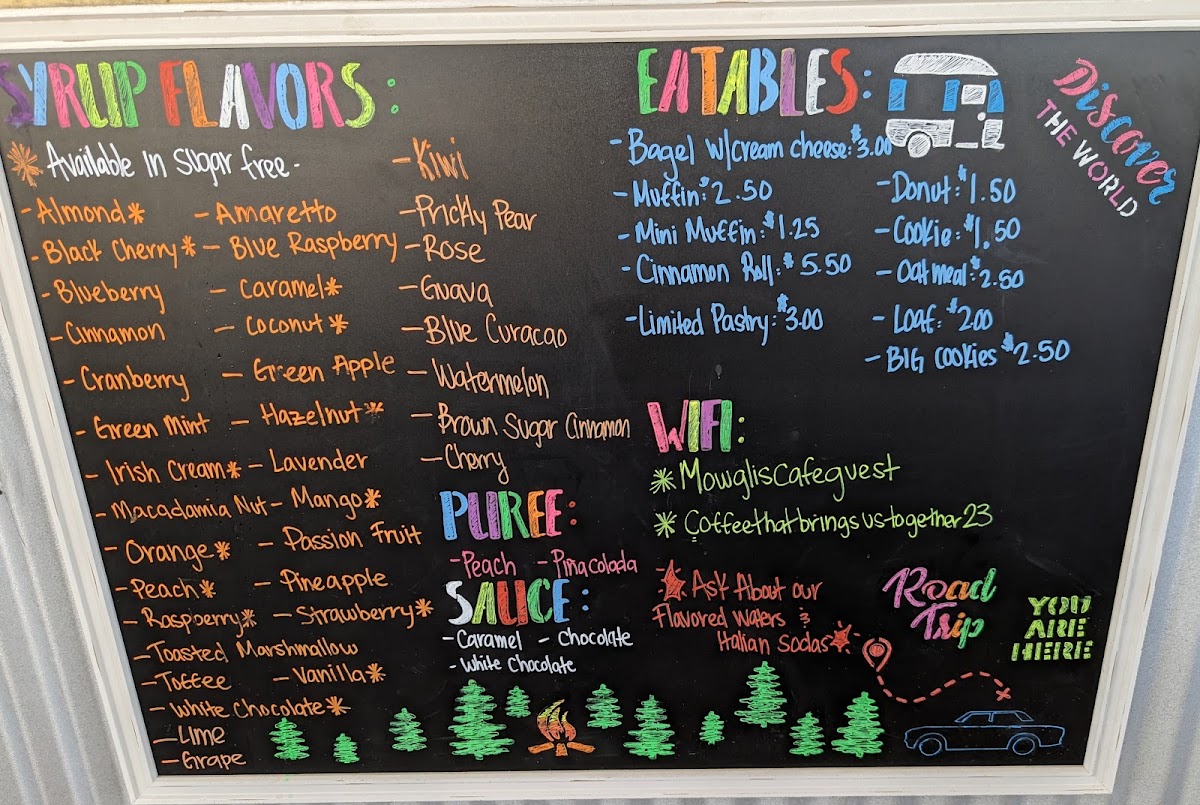 SYRUP FLAVORS:
* Available in sugar free -
- Almond*
- Black Cherry*
- Blueberry
- Cinnamon
- Cranberry
- Green Mint
- Irish Cream*
- Macadamia Nut
- Orange*
- Peach*
- Raspberry*
- Toasted Marshmallow
- Toffee
- White Chocolate*
- Lime
- Grape
- Amaretto
- Blue Raspberry
- Caramel*
- Coconut*
- Green Apple
- Hazelnut*
- Lavender
- Mango*
- Passion Fruit
- Pineapple
- Strawberry*
- Vanilla*
- Kiwi
- Prickly Pear
- Rose
- Guava
- Blue Curacao
- Watermelon
- Brown Sugar Cinnamon
- Cherry
PUREE:
- Peach - Pinacolada
SAUCE:
- Caramel - Chocolate
- White Chocolate
EATABLES:
- Bagel w/cream cheese: $3.00
- Muffin: $2.50
- Mini Muffin: $1.25
- Cinnamon Roll: $5.50
- Limited Pastry: $3.00
- Donut: $1.50
- Cookie: $1.50
- Oatmeal: $2.50
- Loaf: $2.00
- BIG cookies $2.50
Discover
THE WORLD
WIFI:
* Mowgliscafeguest
* Coffeethatbringsustogether23
- Ask About our
Flavored Waters &
Italian Sodas
Road
Trip
YOU
ARE
HERE